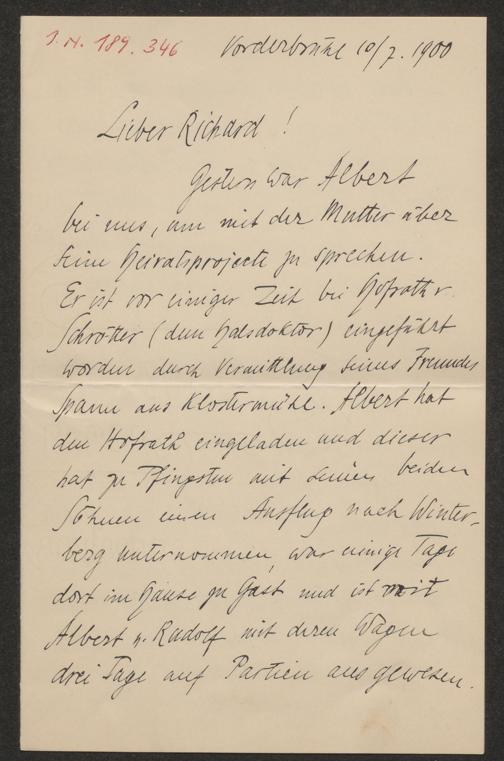 J. N. 189.346
Vorderbrühl 10/7. 1900
Lieber Richard !
Gestern war Albert
bei uns, um mit der Mutter über
seine Heiratsprojecte zu sprechen.
Er ist vor einiger Zeit bei Hofrath v.
Schrötter (dem Halsdoktor) eingeführt
worden durch Vermittlung seines Freundes
Spann aus Klostermühle. Albert hat
den Hofrath eingeladen und dieser
hat zu Pfingsten mit seinen beiden
Söhnen einen Ausflug nach Winter-
berg unternommen, war einige Tage
dort im Hause zu Gast und ist mit
Albert u. Rudolf mit deren Wagen
drei Tage auf Partien aus gewesen.